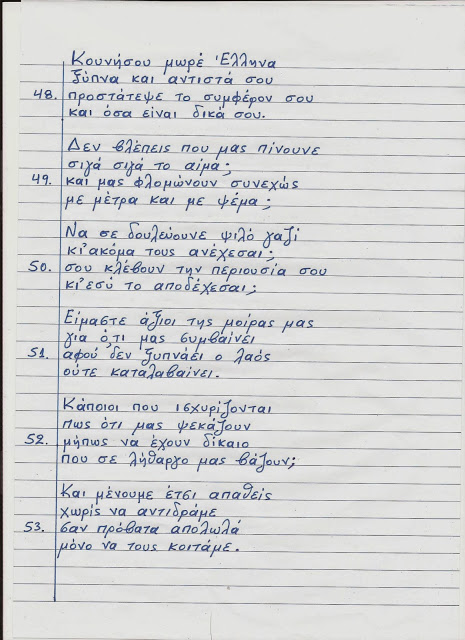 Κουνήσου μωρέ Έλληνα
ξύπνα και αντιστά σου
48. προστάτεψε το συμφέρον σου
και όσα είναι δικά σου.
Δεν βλέπεις που μας πίνουνε
σιγά σιγά το αίμα;
49. και μας φλομώνουν συνεχώς
με μέτρα και με ψέμα;
Να σε δουλεύουνε ψιλό γαζί
κι' ακόμα τους ανέχεσαι;
50. σου κλέβουν την περιουσία σου
κι' εσύ το αποδέχεσαι;
Είμαστε άξιοι της μοίρας μας
για ό,τι μας συμβαίνει
51. αφού δεν ξυπνάει ο λαός
ούτε καταλαβαίνει.
Κάποιοι που ισχυρίζονται
πως ότι μας ψεκάζουν
52. μήπως να έχουν δίκαιο
που σε λήθαργο μας βάζουν;
Και μένουμε έτσι απαθείς
χωρίς να αντιδράμε
53. σαν πρόβατα απόλωλά
μόνο να τους κοιτάμε.